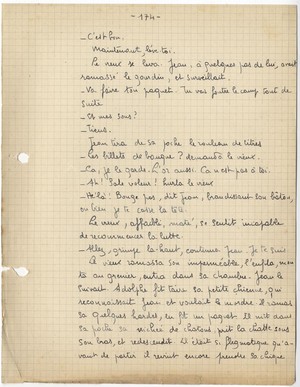 - 174 -
_ C'est bon.
Maintenant, lève-toi.
Le vieux se leva. Jean, à quelques pas de lui, avait
ramassé le gourdin, et surveillait.
_ Va faire ton paquet. Tu vas foutre le camp tout de
suite
_ Et mes sous?
_ Tiens.
Jean tira de sa poche le rouleau de titres
_ Les billets de banque? demanda le vieux.
_ Ça, je le garde. L'or aussi. Ca n'est pas à toi.
_ Ah! Sale voleur! hurla le vieux
_ Hélà! Bouge pas, dit Jean, brandissant son bâton,
ou bien je te casse la tête
Le vieux, affaibli, maté, se sentit incapable
de recommencer la lutte.
_ Allez, grimpe là-haut, continua Jean. Je te suis
Le vieux ramassa son imperméable, l'enfila, mon-
ta au grenier, entra dans sa chambre. Jean le
suivait. Adolphe fit taire sa petite chienne, qui
reconnaissait Jean et voulait le mordre. Il ramas-
sa quelques hardes, en fit un paquet. Il mit dans
sa poche sa nichée de chatons, prit la chatte sous
son bras, et redescendit. Il était si flegmatique qu'a-
vant de partir il revint encore prendre sa chique